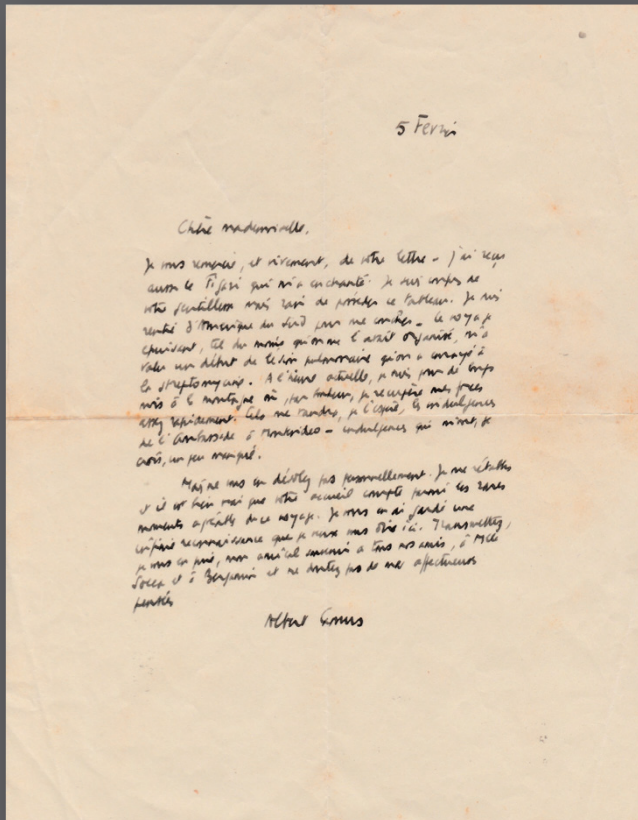 5 Février
Chère mademoiselle,
Je vous remercie, et vivement, de votre lettre - j'ai reçu
aussi le Figari qui m'a enchanté. Je suis confus de
votre gentillesse mais ravi de posséder ce tableau. Je suis
rentré d'Amérique du Sud pour me coucher - le voyage
épuisant, tel du moins qu'on me l'avait organisé, m'a
valu un début de lésion pulmonaire qu'on a enrayé à
la streptomycine. A l'heure actuelle, je suis pour de longs
mois à la montagne où, par bonheur, je récupère mes forces
assez rapidement. Cela me vaudra, je l'espère, les indulgences
de l'Ambassade à Montevideo - indulgences qui m'ont, je
crois, un peu manqué.
Mais ne vous en désolez pas personnellement. Je me rétablis
et il est bien vrai que votre accueil compte parmi les rares
moments agréables de ce voyage. Je vous en ai gardé une
reconnaissance que je veux vous dire ici. Transmettez,
je vous en prie, mon amical souvenir à tous nos amis, à Melle
et à Benjamin et ne doutez pas de mes affectueuses
pensées
Albert Camus